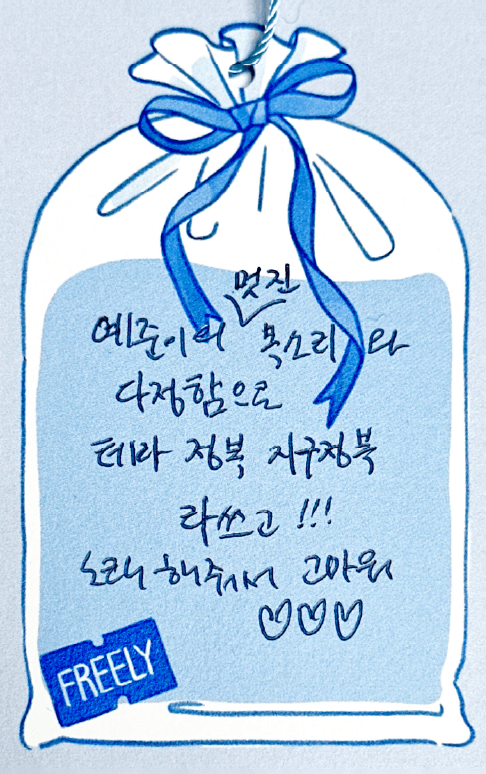 예준이의 멋진 목소리와
다정함으로
테라 정복 지구정복
라쓰고 !!!
노래해줘서 고마워
♡♡♡
FREELY